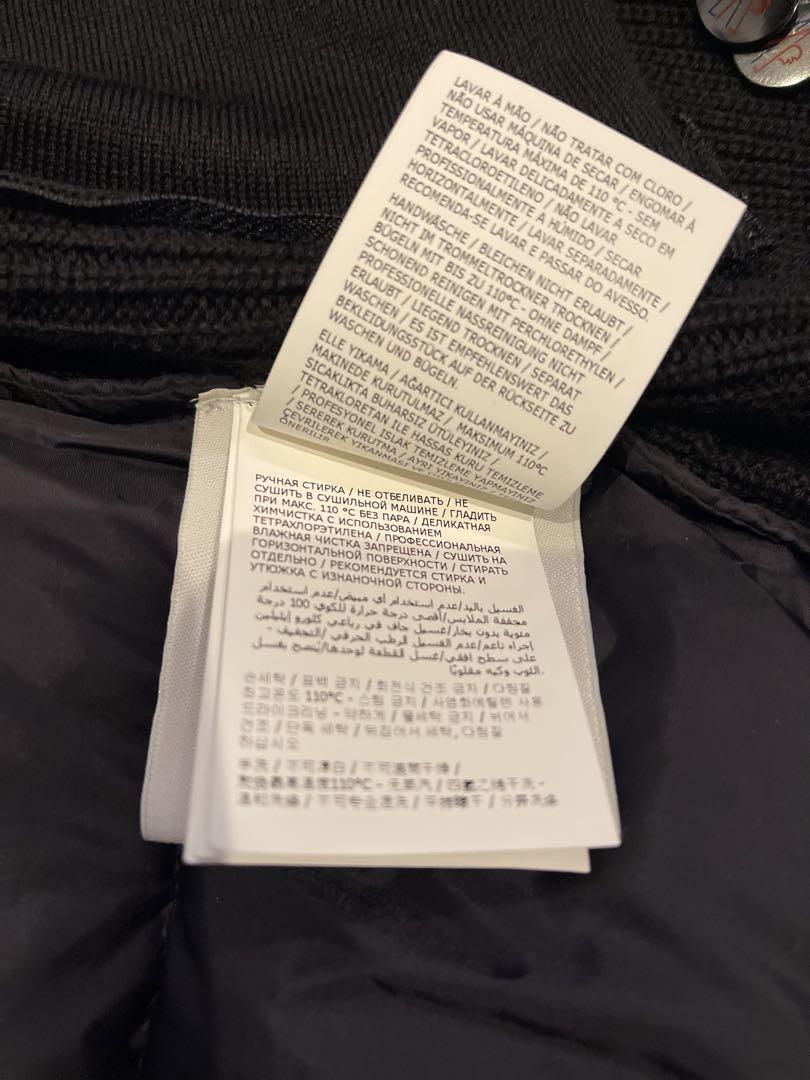 LAVAR À MÃO / NÃO TRATAR COM CLORO /
NÃO USAR MÁQUINA DE SECAR / ENGOMAR À
TEMPERATURA MÁXIMA DE 110 ºC - SEM
VAPOR / LAVAR DELICADAMENTE A SECO EM
TETRACLOROETILENO / NÃO LAVAR
PROFISSIONALMENTE A HÚMIDO / SECAR
HORIZONTALMENTE / LAVAR SEPARADAMENTE /
RECOMENDA-SE LAVAR E PASSAR DO AVESSO.
HANDWÄSCHE / BLEICHEN NICHT ERLAUBT /
NICHT IM TROMMELTROCKNER TROCKNEN /
BÜGELN MIT BIS ZU 110ºC - OHNE DAMPF /
SCHONEND REINIGEN MIT PERCHLORETHYLEN /
PROFESSIONELLE NASSREINIGUNG NICHT
ERLAUBT / LIEGEND TROCKNEN / SEPARAT
WASCHEN / ES IST EMPFEHLENSWERT DAS
BEKLEIDUNGSSTÜCK AUF DER RÜCKSEITE ZU
WASCHEN UND BÜGELN.
ELLE YIKAMA / AĞARTICI KULLANMAYINIZ /
MAKINEDE KURUTULMAZ / MAKSIMUM 110ºC
SICAKLIKTA BUHARSIZ ÜTÜLEYINIZ /
TETRAKLORETAN ILE HASSAS KURU TEMIZLEME
/ PROFESYONEL ISLAK TEMIZLEME YAPMAYINIZ
/ SEREREK KURUTMA / AYRI YIKAYINIZ /
ÇEVRILEREK YIKANMASI VE
ÖNERILIR.
РУЧНАЯ СТИРКА / НЕ ОТБЕЛИВАТЬ / НЕ
СУШИТЬ В СУШИЛЬНОЙ МАШИНЕ / ГЛАДИТЬ
ПРИ МАКС. 110 ºC БЕЗ ПАРА / ДЕЛИКАТНАЯ
ХИМЧИСТКА С ИСПОЛЬЗОВАНИЕМ
ТЕТРАХЛОРЭТИЛЕНА / ПРОФЕССИОНАЛЬНАЯ
ВЛАЖНАЯ ЧИСТКА ЗАПРЕЩЕНА / СУШИТЬ НА
ГОРИЗОНТАЛЬНОЙ ПОВЕРХНОСТИ / СТИРАТЬ
ОТДЕЛЬНО / РЕКОМЕНДУЕТСЯ СТИРКА И
УТЮЖКА С ИЗНАНОЧНОЙ СТОРОНЫ.
الغسيل باليد/عدم استخدام أي مبيض/عدم استخدام
مجففة الملابس/أقصى درجة حرارة للكوي 100 درجة
مئوية بدون بخار/غسيل جاف في رباعي كلورو إيثيلين
إجراء ناعم/عدم الغسيل الرطب الحرفي /التجفيف -
على سطح افقي/غسل القطعة لوحدها/يُنصح بغسل
الثوب وكيه مقلوبًا.
손세탁 / 표백 금지 / 회전식 건조 금지 / 다림질
최고온도 110ºC - 스팀 금지 / 사염화에틸렌 사용
드라이크리닝 - 약하게 / 물세탁 금지 / 뉘어서
건조 / 단독 세탁 / 뒤집어서 세탁, 다림질
하십시오
手洗 / 不可漂白 / 不可滚筒干燥 /
熨烫最高温度110ºC - 无蒸汽 / 四氯乙烯干洗 -
温和洗涤 / 不可专业湿洗 / 平摊晾干 / 分开洗涤